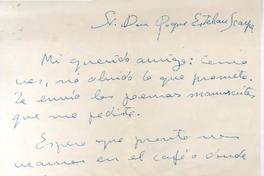 Sr. Don Roque Esteban Scarpa
Mi querido amigo: Como
ves, no olvido lo que prometo.
Te envío los poemas manuscritos
que me pediste.
Espero que pronto nos
veamos en el café o donde